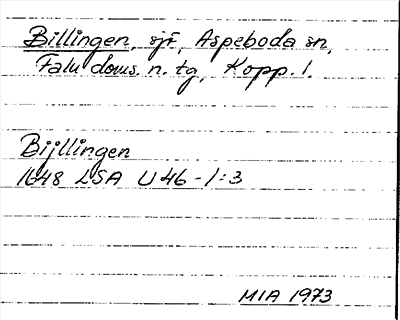 Billingen, sjö, Aspeboda sn,
Falu doms. n. tg, Kopp. l.
Bijllingen
1648 LSA U46-1:3
MIA 1973